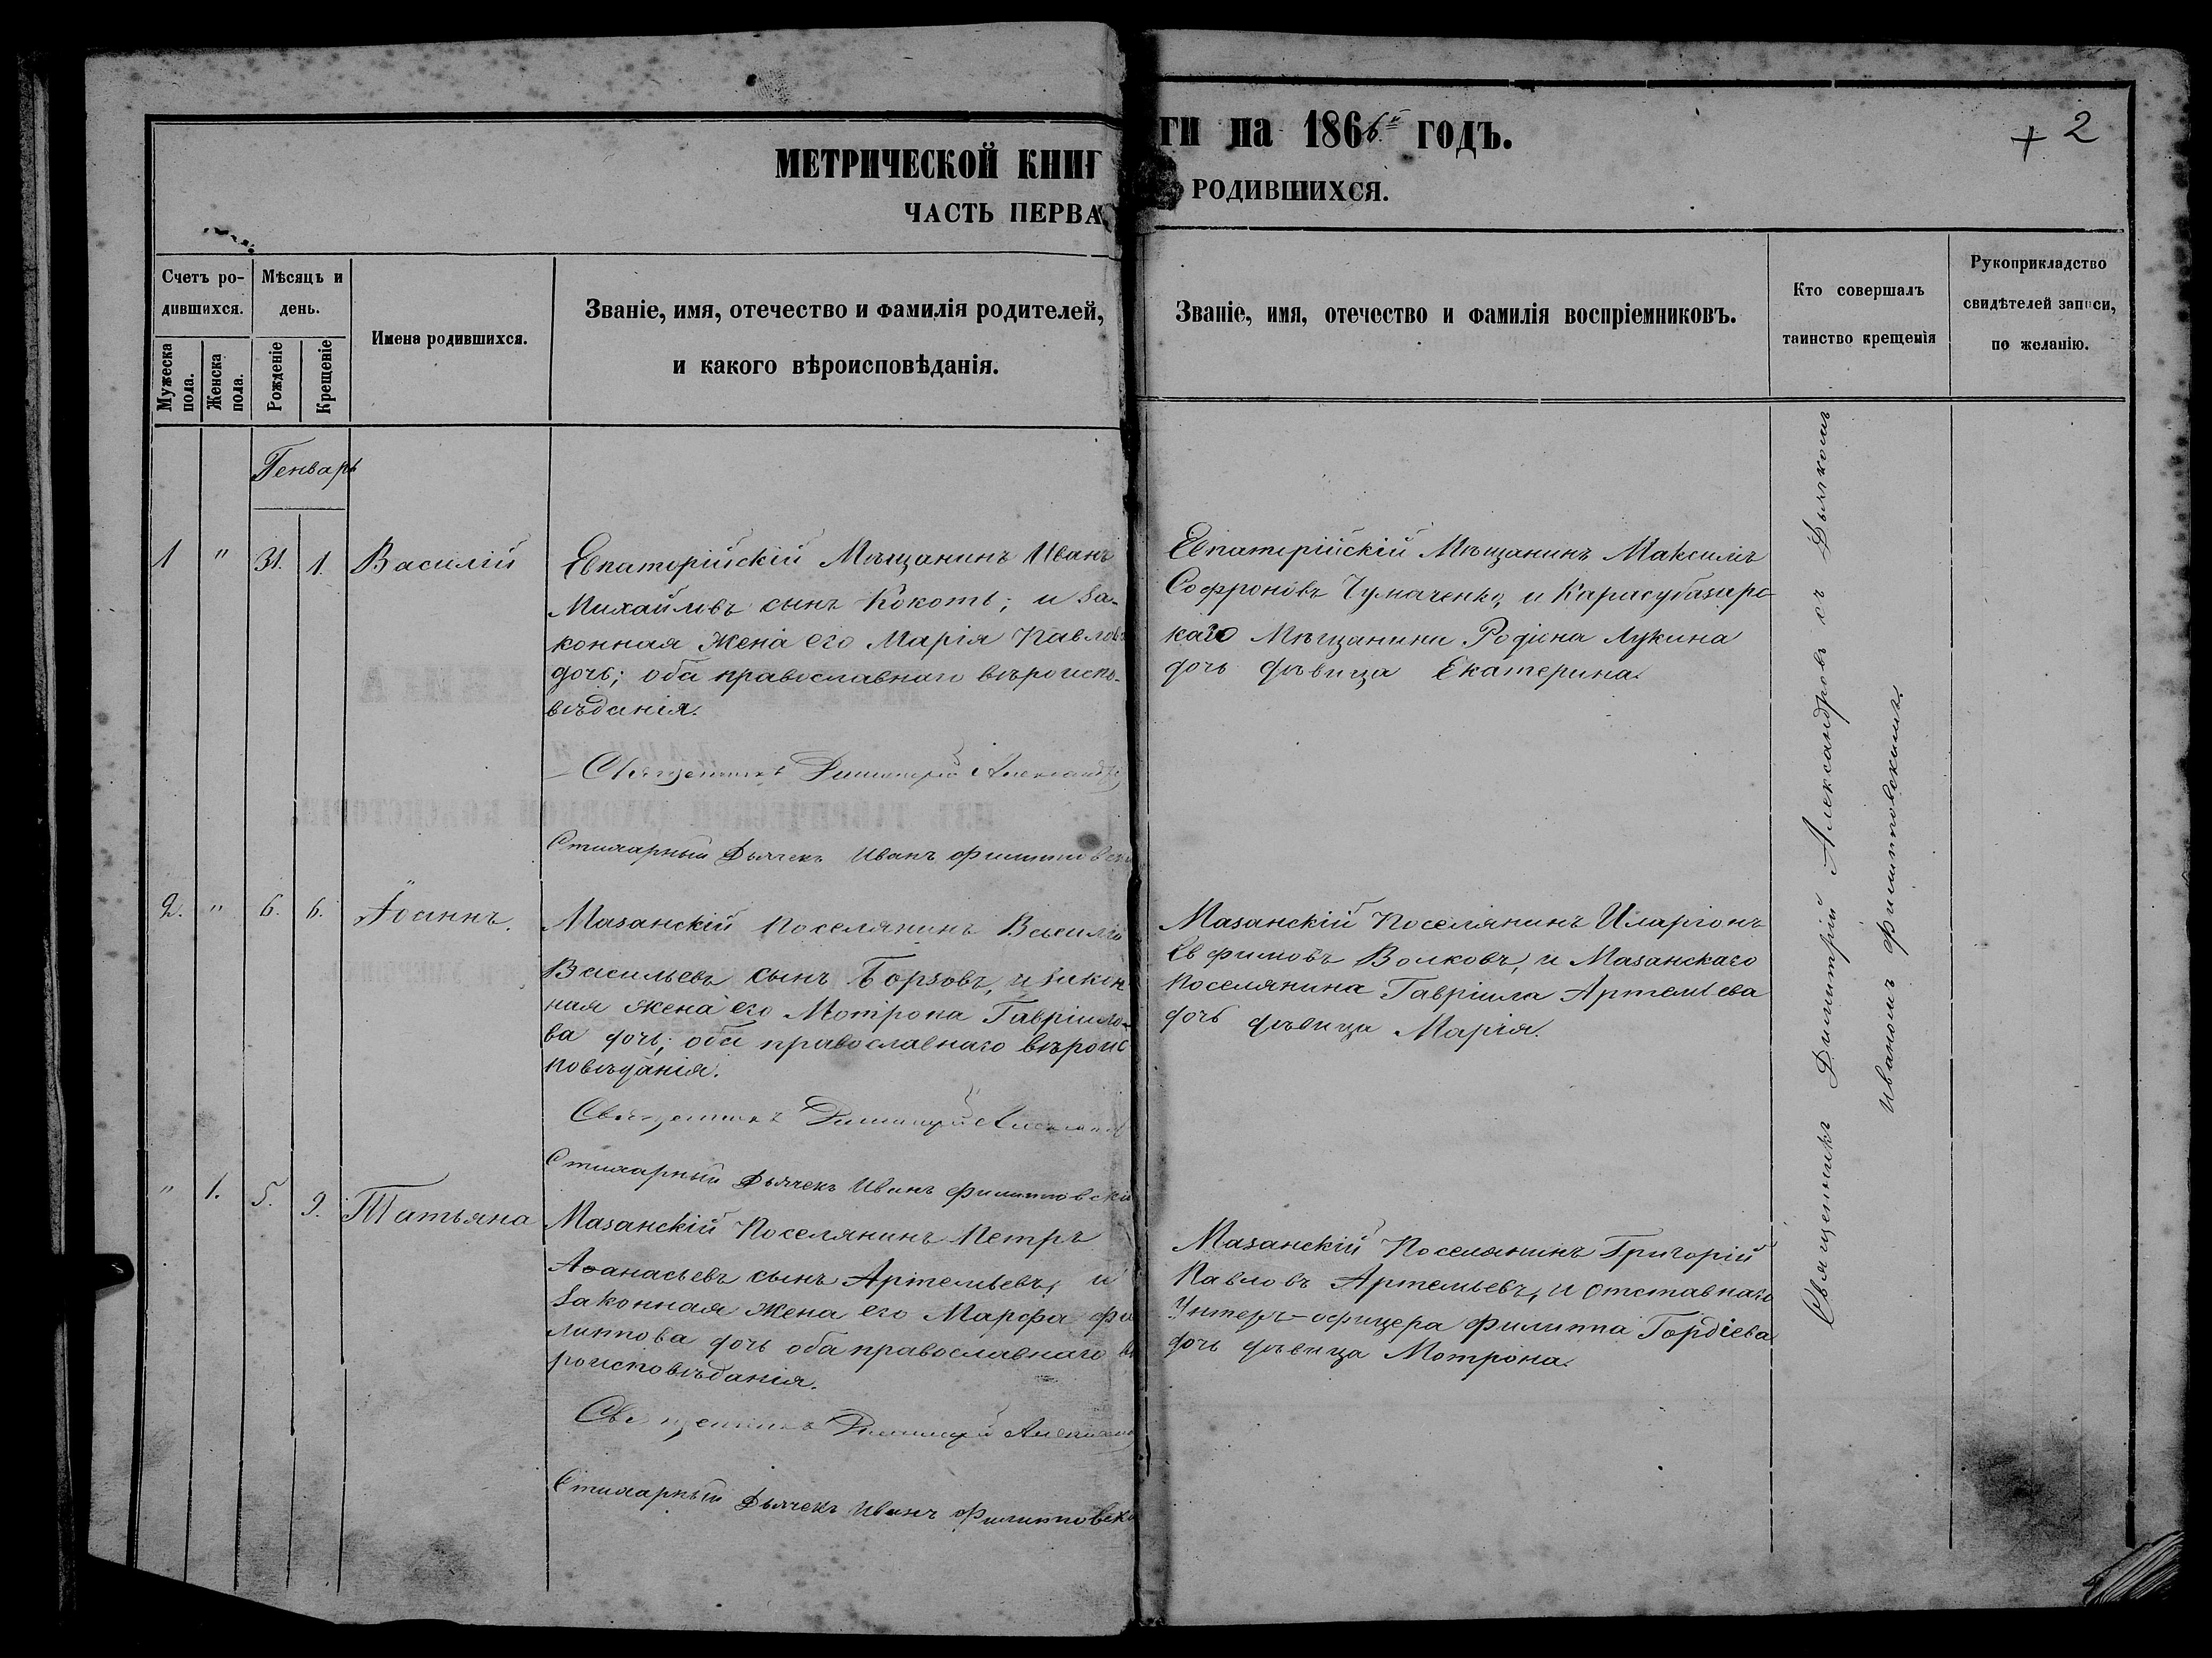 МЕТРИЧЕСКОЙ КНИГ
ЧАСТЬ ПЕРВА
Счетъ ро-
дившихся.
Мужеска
пола.
Женска
пола.
Мѣсяцъ и
день.
Рожденіе
Крещеніе
Имена родившихся.
Званіе, имя, отечество и фамилія родителей,
и какого вѣроисповѣданія.
Генварь
1 " 31. 1. Василій
Евпаторійскій Мѣщанинъ Иванъ
Михайловъ сынъ Кокоть; и за-
конная жена его Марія Павлов
дочь; оба православнаго вѣроиспо-
вѣданія.
Священникъ Димитрій Александр
Стихарный Дьячекъ Иванъ Филипповск
2. " 6. 6. Іоаннъ.
Мазанскій Поселянинъ Василій
Васильевъ сынъ Борзовъ, и закон
ная жена его Мотрона Гавріило-
ва дочь; оба православнаго вѣроис
повѣданія.
Священникъ Димитрій Александ
Стихарный Дьячекъ Иванъ Филипповскі
" 1. 5. 9. Татьяна
Мазанскій Поселянинъ Петръ
Аѳанасьевъ сынъ Артемьевъ, и
законная жена его Марфа Фи
липпова дочь оба православнаго вѣ
роисповѣданія.
Священникъ Димитрій Александ
Стихарный Дьячекъ Иванъ Филипповск
ги на 1866й годъ.
РОДИВШИХСЯ.
+ 2
Званіе, имя, отечество и фамилія воспріемниковъ.
Кто совершалъ
таинство крещенія
Рукоприкладство
свидѣтелей записи,
по желанію.
Евпаторійскій Мѣщанинъ Максимъ
Софроновъ Чумаченко, и Карасубазарс-
каго Мѣщанина Родіона Лукина
дочь дѣвица Екатерина.
Мазанскій Поселянинъ Иларіонъ
Евфимовъ Волковъ, и Мазанскаго
Поселянина Гавріила Артемьева
дочь дѣвица Марія.
Мазанскій Поселянинъ Григорій
Павловъ Артемьевъ, и отставнаго
Унтеръ-офицера Филиппа Гордіева
дочь дѣвица Мотрона.
Священникъ Димитрій Александровъ съ Дьячкомъ
Иваномъ Филипповскимъ.